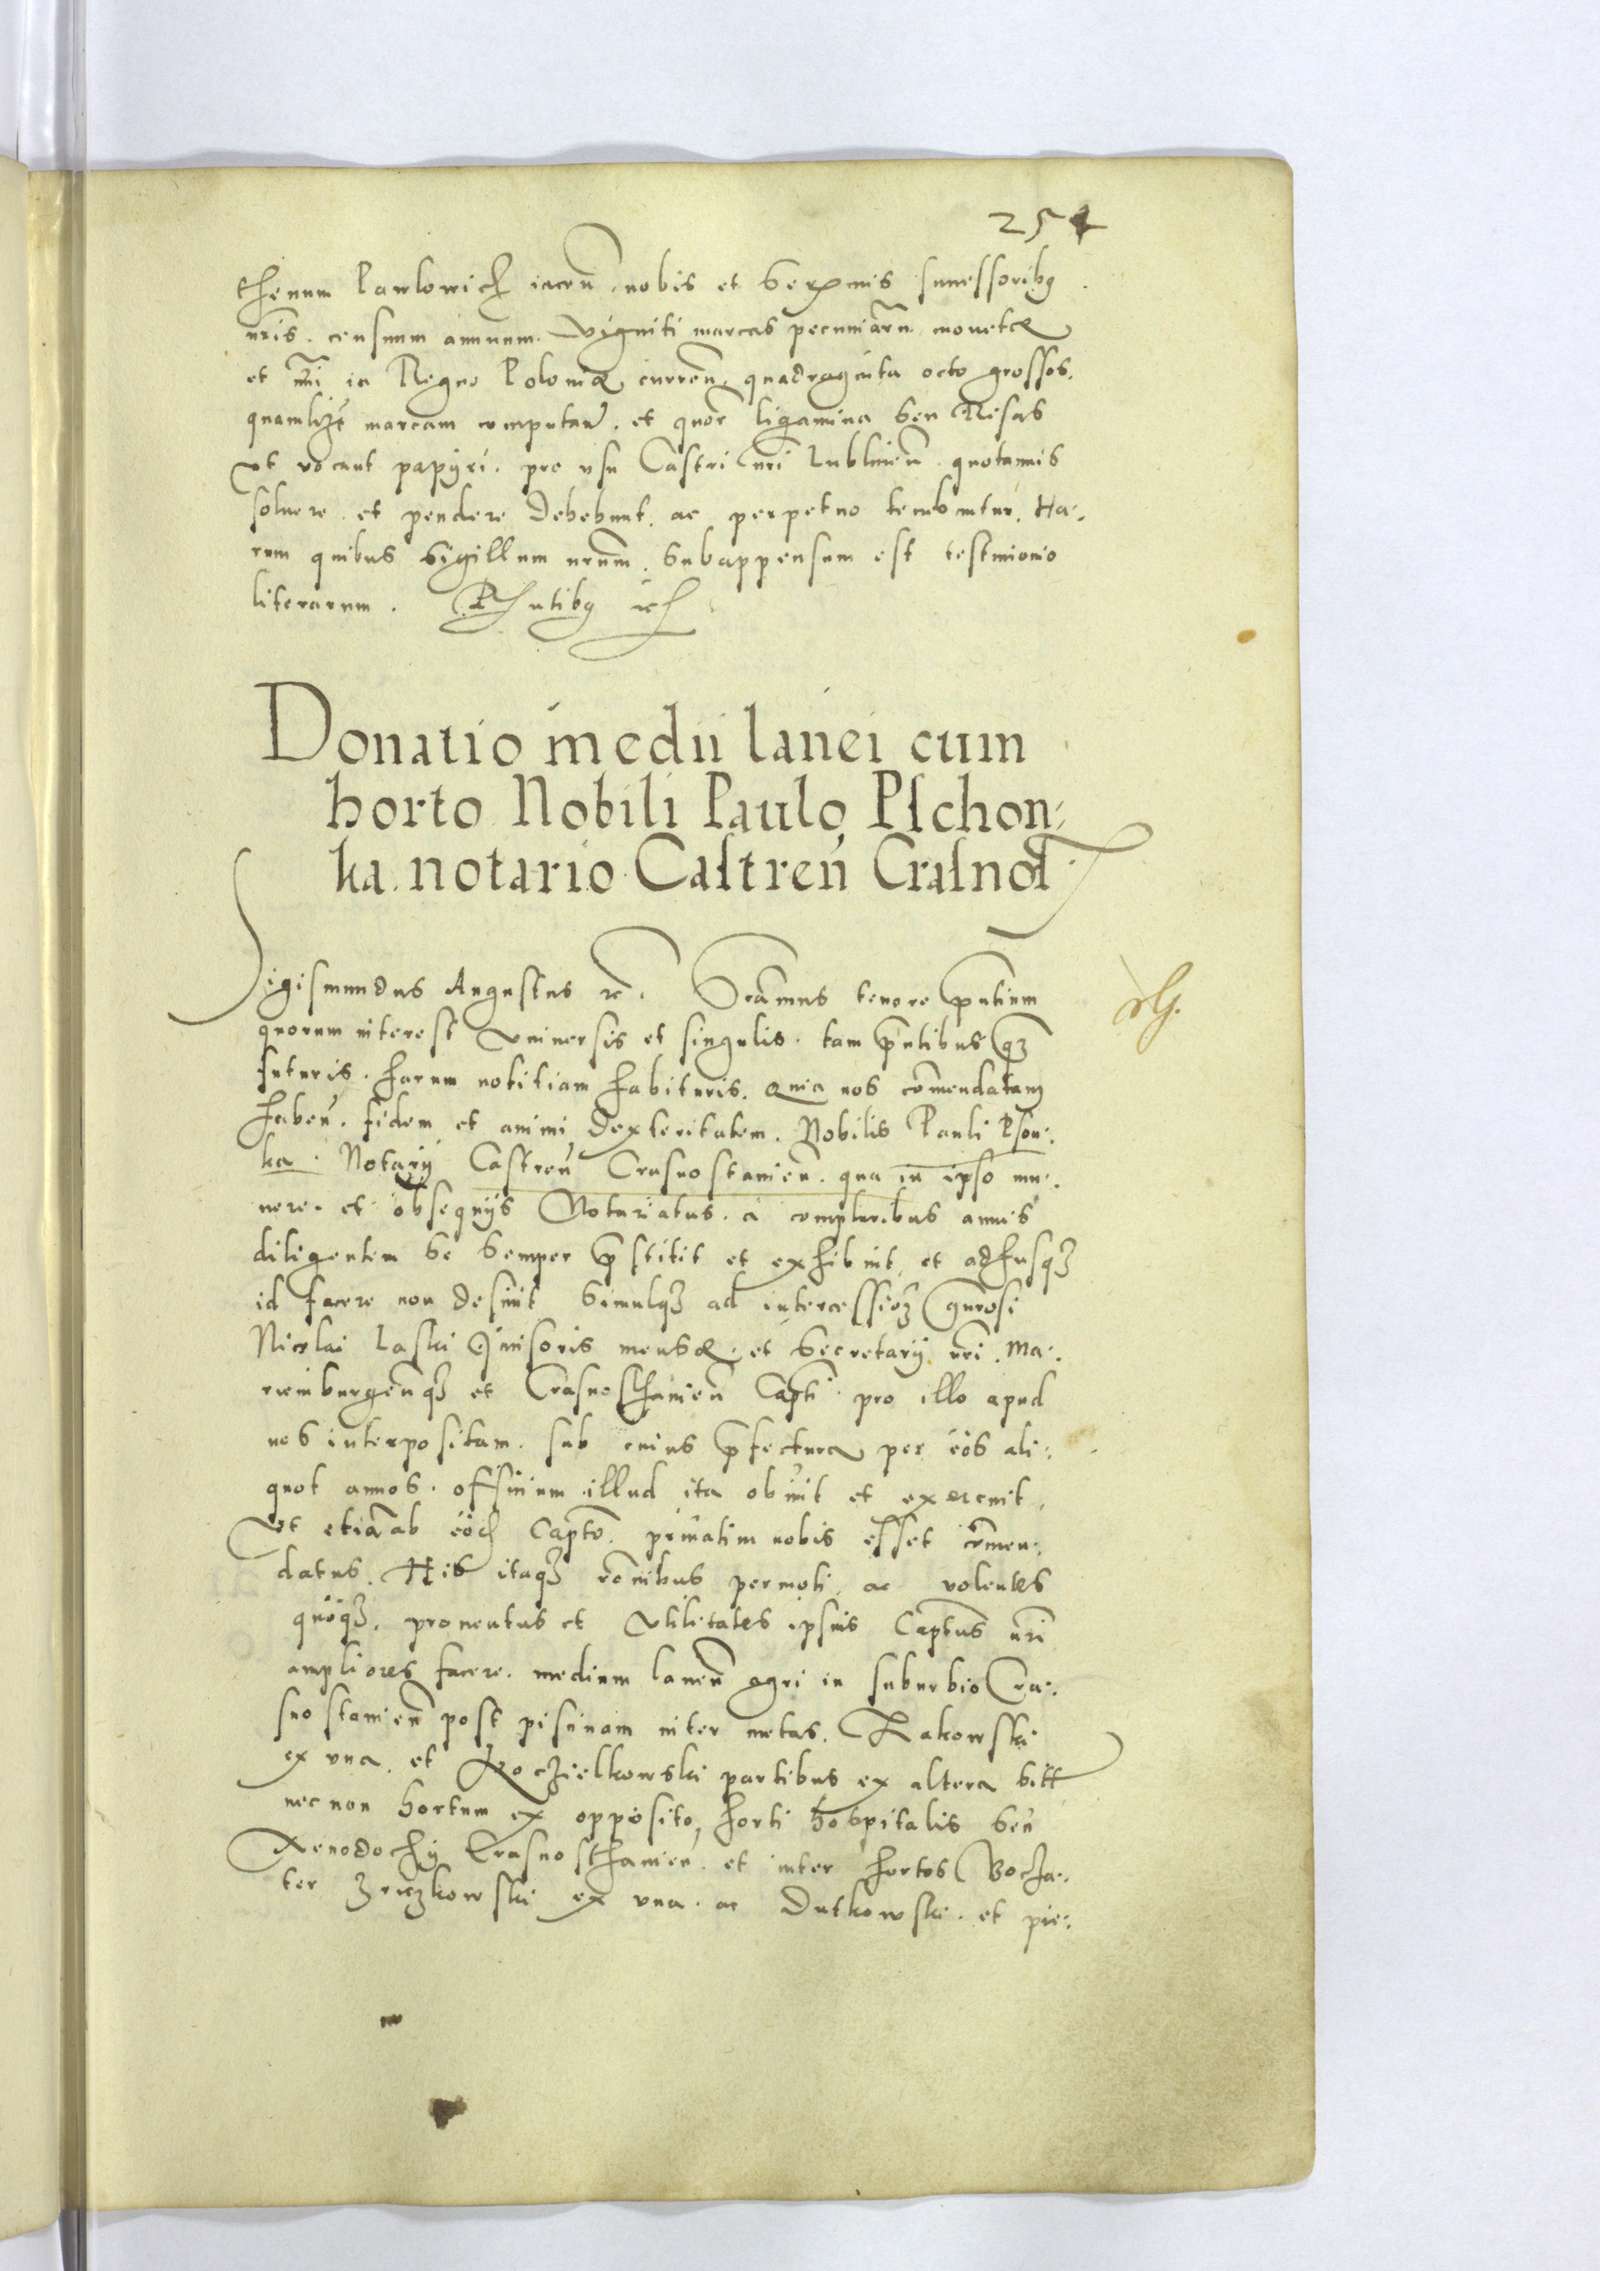 254
thenum Pawlowich iacen. nobis et Serenis successoribq
nris. censum annuum. Viginti marcas pecuniaru monetæ
et nri in Regno Poloniæ curren. quadraginta octo grossos.
quamlibet marcam computan. et quor ligamina seu Risas
Vt vocant papÿri. pro vsu Castri nri Lublinen. quotannis
soluere. et pendere debebunt. ac perpetuo tenebuntur. Ha:
rum quibus Sigillum nrum. Subappensum est testimonio
literarum. Pntibq etc
Donatio medii lanei cum
horto Nobili Paulo Pschon:
ka. notario Castren Crasnost.
Sigismundus Augustus etc. tenore pntium
quorum interest Vniuersis et singulis. tam pntibus qz
futuris. harum notitiam habituris. Quia nos comendatam
haben. fidem et animi dexteritatem. Nobilis Pauli Pson:
ka. Notarÿ Castren Crasnostamien. qua in ipso mu:
nere. et obsequÿs Notariatus. a compluribus annis
diligentem Se Semper pstitit et exhibuit, et adhusqz
id facere non desinit Simulqz ad intercessioz gnrosi
Nicolai Laski Incisoris mensæ. et Secretarÿ nri. Ma:
rieinburgenqz et Crasnosthamien Capti pro illo apud
nos interpositam. sub cuius pfectura per eos ali:
quot annos. officium illud ita obiuit et exercuit,
Vt etia ab eod Capto. priuatim nobis esset comen:
datus. His itaqz ronibus permoti, ac volentes
quoqz. prouentus et Vtilitates ipsius Captus nri
ampliores facere. medium laneu agri in suburbio Cra:
snostamien post piscinam inter metas. Rakowski
ex vna. et partibus ex altera sitt
necnon hortum ex opposito, horti hospitalis seu
Xenodochÿ Crasnosthamien. et inter hortos Bocha:
ter ex vna. ac Dutkowski. et pie: